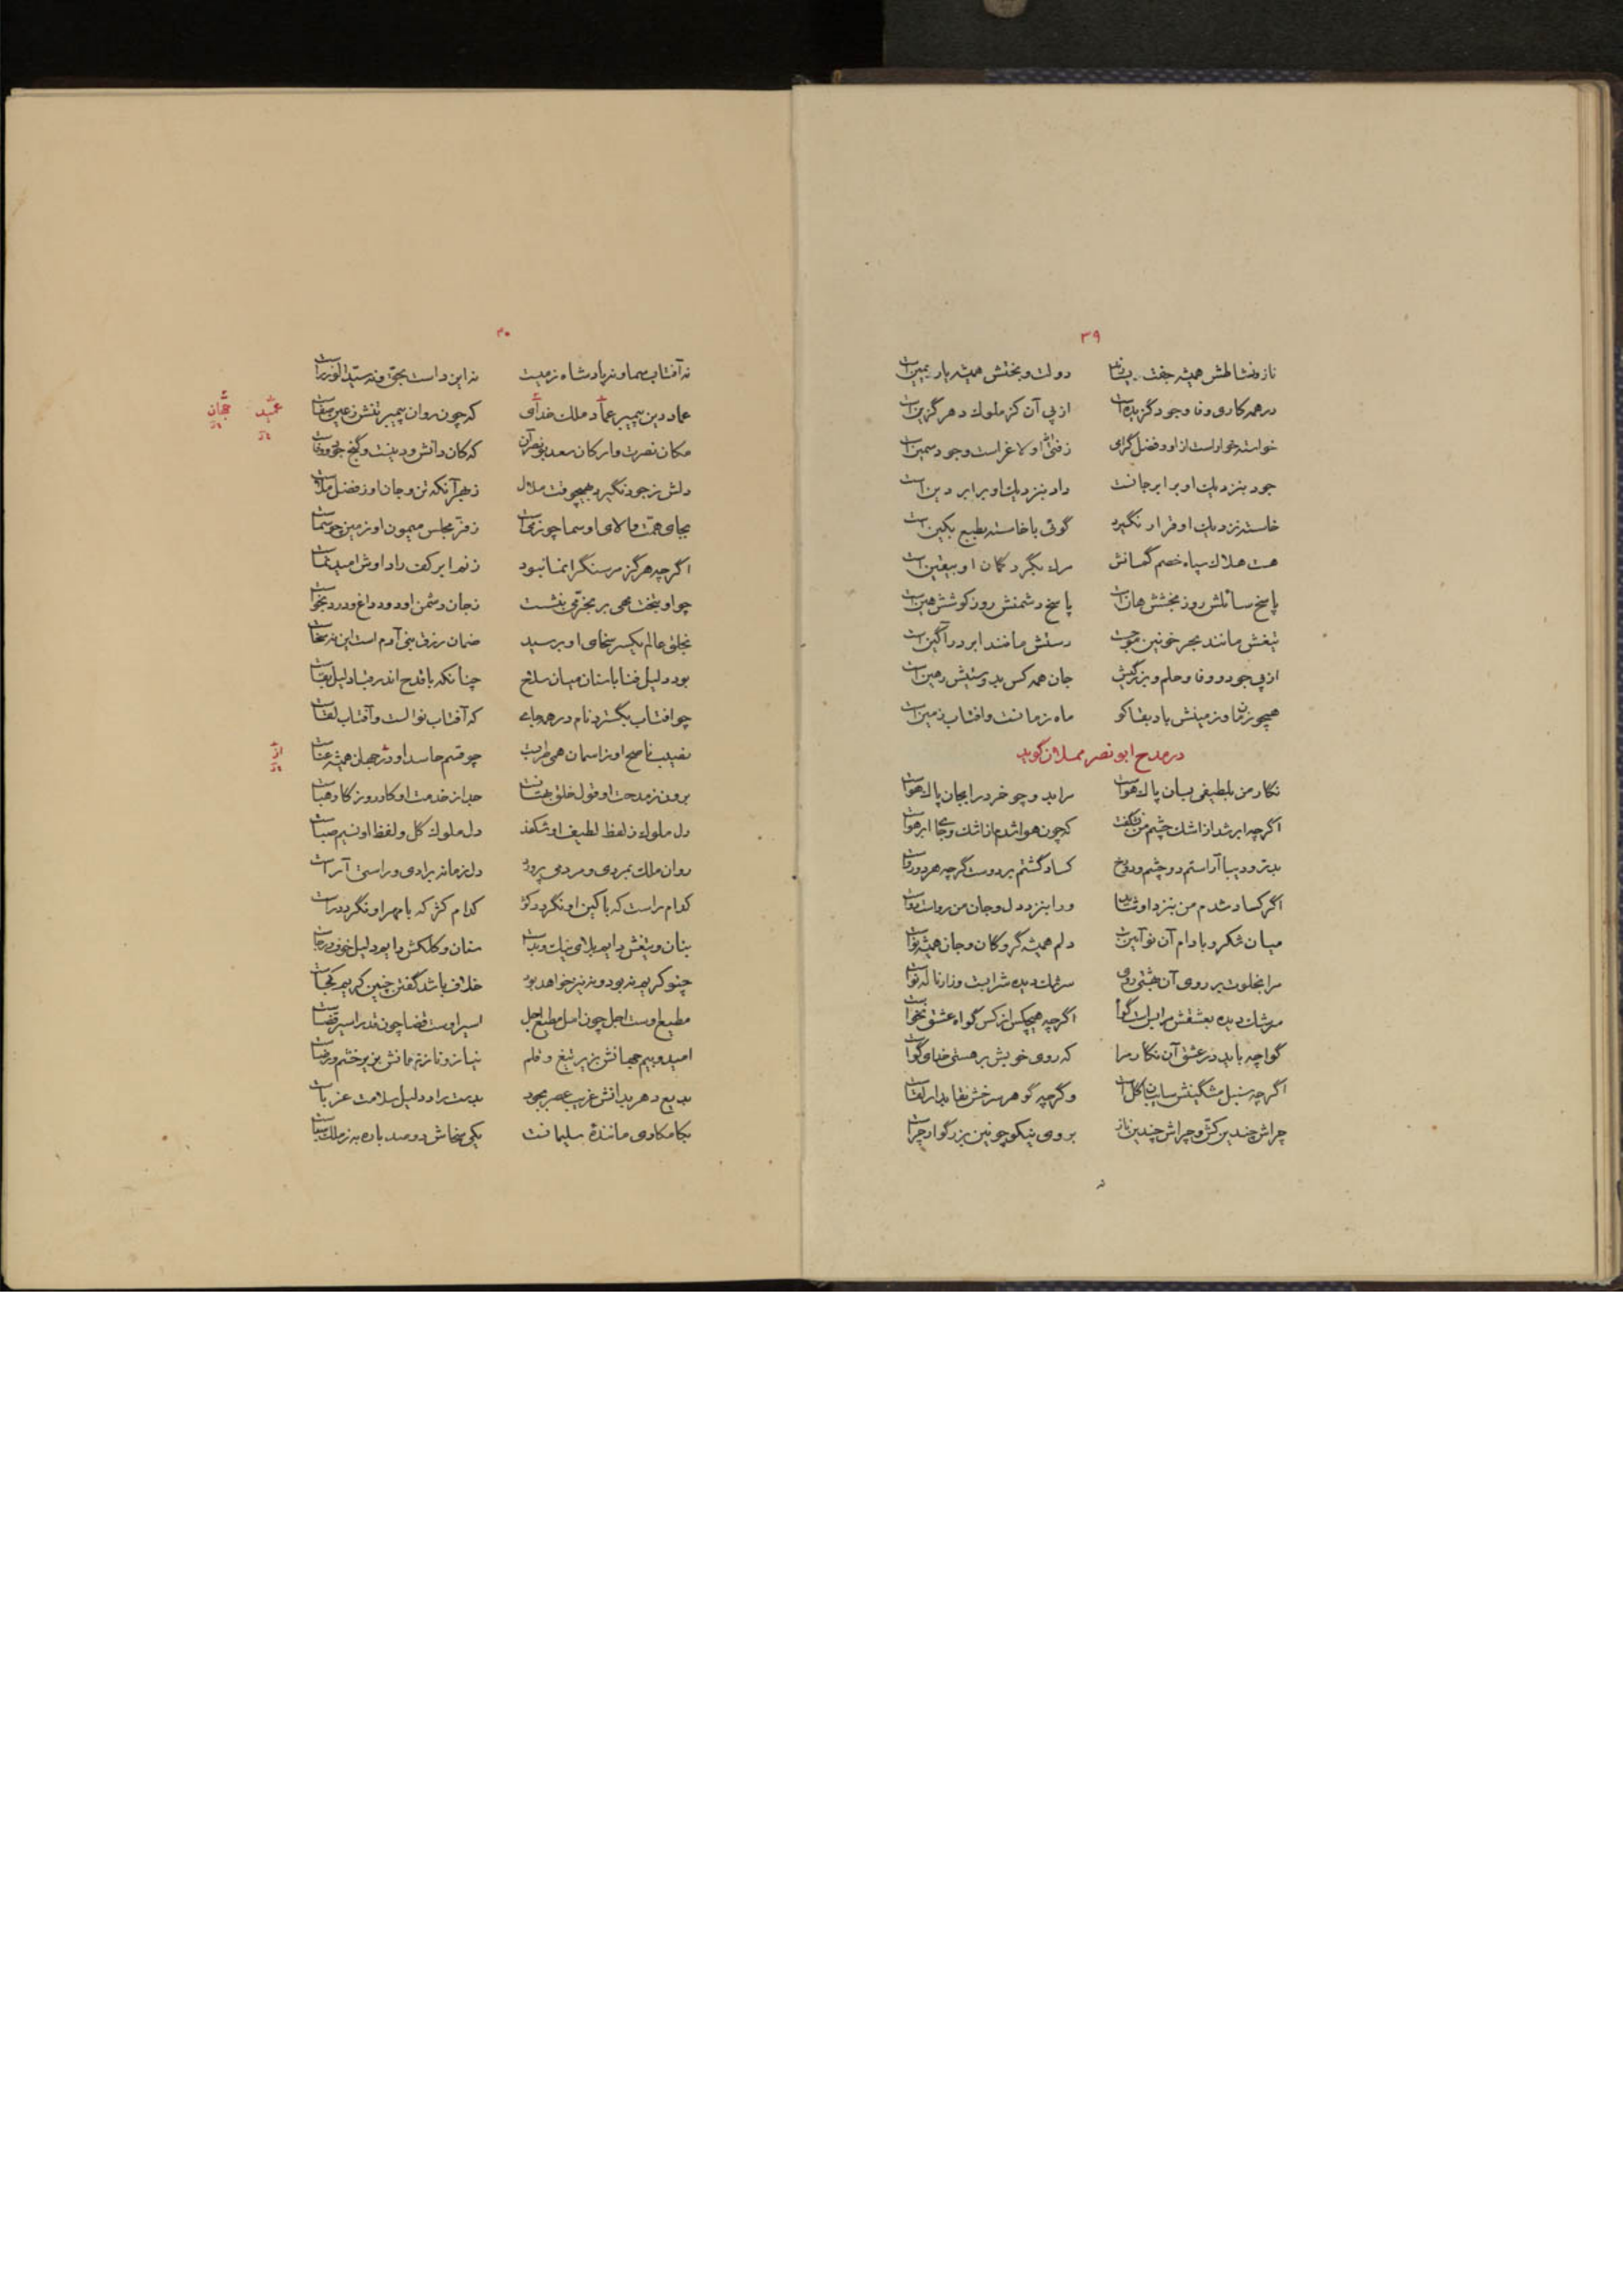 ٣٩
ناز ونشاطش همیشه جفت دولت و بختش همیشه یار یمین است
در همه کاری وفا وجود گزیده است از پی آن کز ملوک دهر گزین است
خواسته خوار است از او و فضل گرامی زفتی او لاغر است وجود سمین است
جود بنزدیک او برابر جانست داد بنزدیک او برابر دین است
خاسته نزدیک او قرار نگیرد گوئی با خاسته بطبع بکین است
هست هلاک سپاه خصم گمانش مرگ بگرد گمان او بیقین است
پاسخ سائلش روز بخشش هان است پاسخ دشمنش روز کوشش هین است
تیغش مانند بحر خونین موجست دستش مانند ابر درآگین است
از پی جود و وفا و حلم و بزرگیش جان همه کس بدوستیش رهین است
همچو زمان و زمینش باد بقا کو ماه زمانست وافتاب زمین است
در مدح ابونصر مملان گوید
نگار من بلطیفی بسان پاک هواست مرا بد و چو خرد را بجان پاک هواست
اگرچه ابر شد از اشک چشم من نشگفت که چون هوا شدم از اشک وجای ابر هواست
بدر و دیبا آراستم دو چشم و دو رخ کساد گشتم بر دوست گرچه هر دو رواست
اگر کساد شدم من بنزد او شاید ورا بنزد دل وجان من رواست رواست
میان شکر و بادام آن نوآیین دلم همیشه گروگان وجان همیشه نواست
مرا بخلوت بر روی آن بهشتی روی سرشک دیده شرابست و زار ناله نواست
سرشک دیده بعشقش مرا بس است گوا اگرچه هیچکس از کس گواه عشق نخواست
گوا چه باید در عشق آن نگار مرا که روی خوبش بر هستی خدای گواست
اگرچه سنبل مشگینش سایبان گل است وگرچه گوهر سرخش نقاب دار لقاست
چراش چندین کش و چراش چندین ناز بروی نیکو چونین بزرگوار چراست
۴۰
نه آفتاب سما و نه پادشاه زمیست نه این دو است بحق و نه سید الوزراست
عماد دین پیمبر عماد ملک خدای که چون روان پیمبر تنش زعین صفاست
عمید
جهان
مکان نصرت وارکان سعد بونصر آن که کان دانش و دینست و گنج جود و وفاست
دلش ز جود نگیرد بهیچوقت ملال زبهر آنکه تن و جان او ز فضل ملاست
بجای همت والای او سما چو زمی است ز فر مجلس میمون او زمین چو سماست
اگرچه هرگز مر سنگ را نما نبود ز نم ابر کف راد اوش امید نماست
چو او بتخت مهی بر بخرمی بنشست زجان دشمن او دود و داغ و درد بخواست
بخلق عالم یکسر سخای او برسید ضمان رزق بنی آدم است این نه سخاست
بود دلیل فنا باستان میان سلاح چنانکه با قدح اندر قبا دلیل بقاست
چو افتاب بگسترد نام در همه جای که آفتاب نوالست وآفتاب لقاست
نصیب ناصح او ز اسمان همی طربست چو قسم حاسد او در جهان همیشه عناست
از
برون ز مدحت او قول خلق بهتانست جدا ز خدمت او کار روزگار هباست
دل ملوک ز لفظ لطیف او شکفد دل ملوک گل و لفظ او نسیم صباست
روان ملک بمردی و مردمی پرورد دل زمانه برادی و راستی آراست
کدام راست که با کین او نگردد کژ کدام کژ که با مهر او نگردد راست
بنان و تیغش دایم بلای نیک و بداست سنان و کلکش دایم دلیل خوف و رجاست
چنو کریم نه بود و نه نیز خواهد بود خلاف باشد گفتن چنین کریم کجاست
مطیع اوست اجل چون امل مطیع اجل اسیر اوست قضا چون قدر اسیر قضاست
امید و بیم جهانش بزیر تیغ و قلم نیاز و ناز زمانش بزیر خشم و رضاست
بدیع دهر بدانش غریب عصر بجود بدست راد دلیل سلامت غرباست
بکامکاری مانندهٔ سلیمانست یکی سخاش دو صد باره به ز ملک سباست